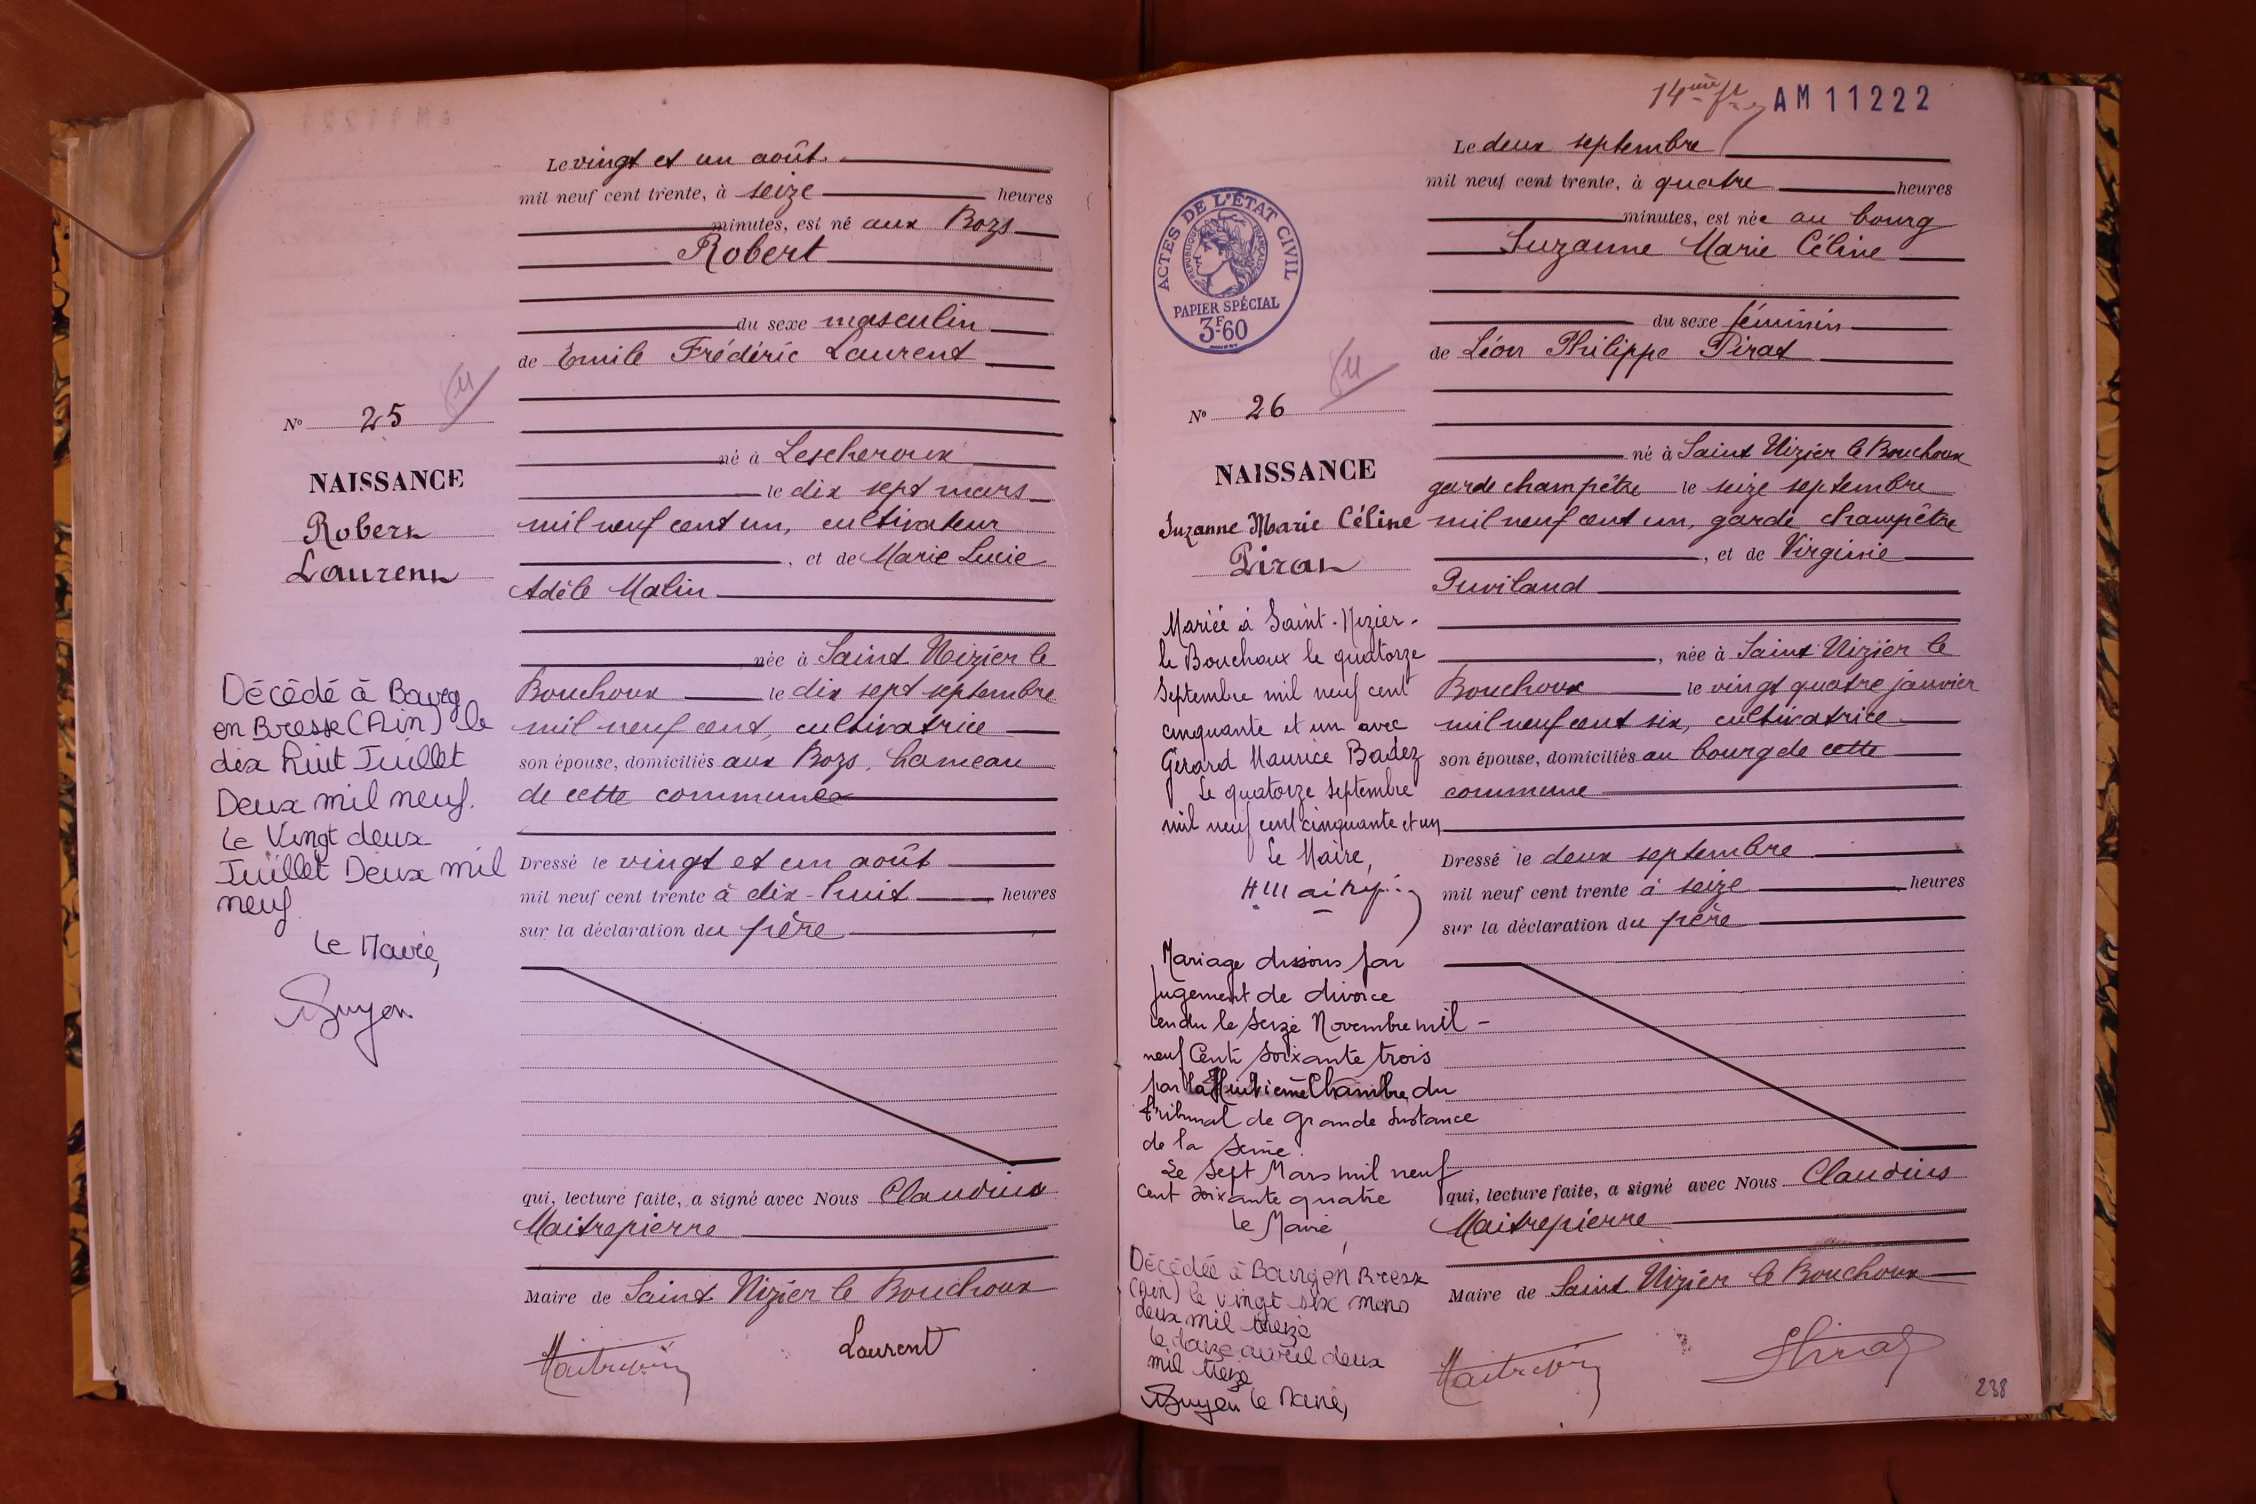 Le vingt et un août
mil neuf cent trente, à seize heures
minutes, est né aux Bozs
Robert
du sexe masculin
de Emile Frédéric Laurent
né à Lescheroux
le dix sept mars
mil neuf cent un, cultivateur
, et de Marie Lucie
Adèle Malin
née à Saint Nizier le
Bouchoux le dix sept septembre
mil neuf cent, cultivatrice
son épouse, domiciliés aux Bozs, hameau
de cette commune
Dressé le vingt et un août
mil neuf cent trente à dix-huit heures
sur la déclaration du père
qui, lecture faite, a signé avec Nous Claudius
Maitrepierre
Maire de Saint Nizier le Bouchoux
Laurent
No 25
NAISSANCE
Robert
Laurent
Décédé à Bourg
en Bresse (Ain) le
dix huit Juillet
Deux mil neuf.
Le Vingt deux
Juillet Deux mil
neuf
Le Maire,
14ème
AM11222
Le deux septembre
mil neuf cent trente, à quatre heures
minutes, est née au bourg
Suzanne Marie Céline
du sexe féminin
de Léon Philippe Pirat
né à Saint Nizier le Bouchoux
garde champêtre le seize septembre
mil neuf cent un, garde champêtre
, et de Virginie
Puviland
, née à Saint Nizier le
Bouchoux le vingt quatre janvier
mil neuf cent six, cultivatrice
son épouse, domiciliés au bourg de cette
commune
Dressé le deux septembre
mil neuf cent trente à seize heures
sur la déclaration du père
qui, lecture faite, a signé avec Nous Claudius
Maitrepierre
Maire de Saint Nizier le Bouchoux
ACTES DE L'ÉTAT CIVIL
RÉPUBLIQUE FRANÇAISE
PAPIER SPÉCIAL
3F60
No 26
NAISSANCE
Suzanne Marie Céline
Pirat
Mariée à Saint-Nizier-
le Bouchoux le quatorze
Septembre mil neuf cent
cinquante et un avec
Gérard Maurice Badez
Le quatorze Septembre
mil neuf cent cinquante et un
Le Maire,
Mariage dissous par
jugement de divorce
rendu le Seize Novembre mil
neuf Cent Soixante trois
par la Huitième Chambre du
Tribunal de Grande Instance
de la Seine.
Le Sept Mars mil neuf
Cent Soixante quatre
le Maire,
Décédée à Bourg en Bresse
(Ain) le vingt six mars
deux mil treize
le douze avril deux
mil treize
le Maire,
238